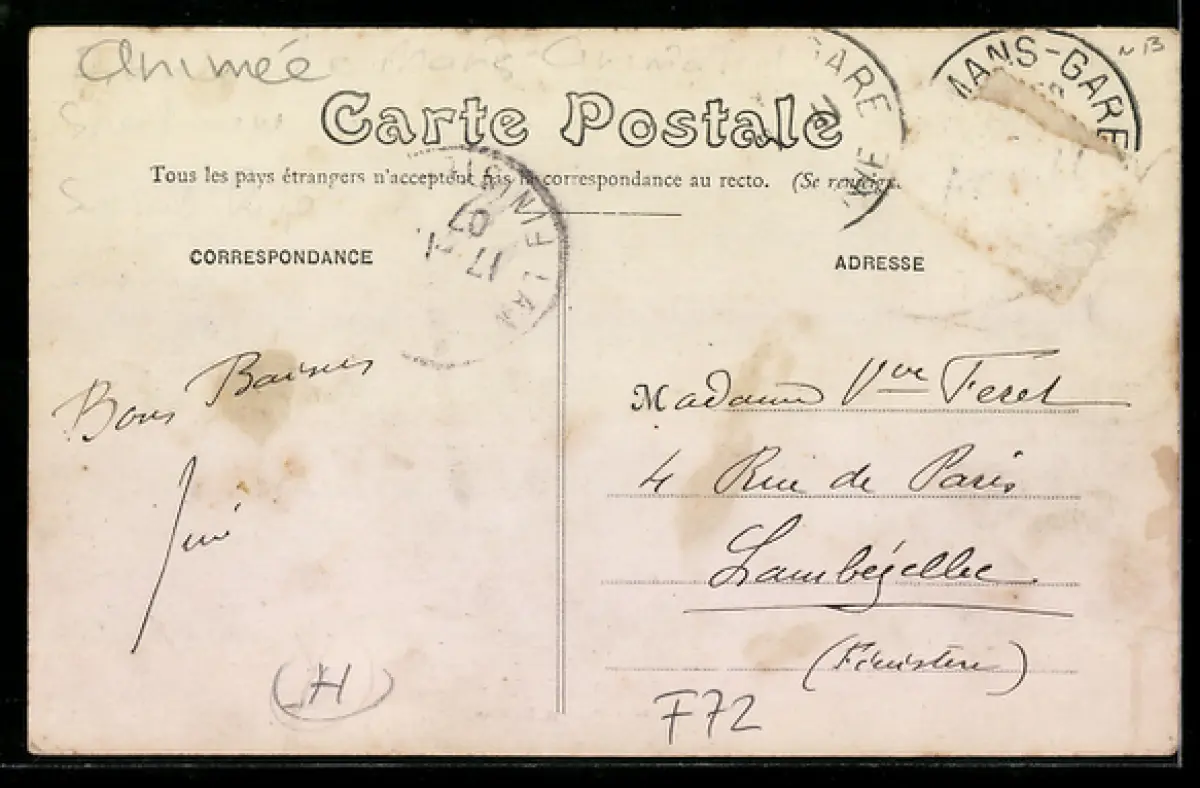 Animée
N 13
MANS-GARE
GARE
Carte Postale
Tous les pays étrangers n'acceptent pas la correspondance au recto. (Se renseign
17
07
CORRESPONDANCE
ADRESSE
Bons Baisers
Madame Vve Feret
4 Rue de Paris
Lambézellec
(Finistère)
H
F72